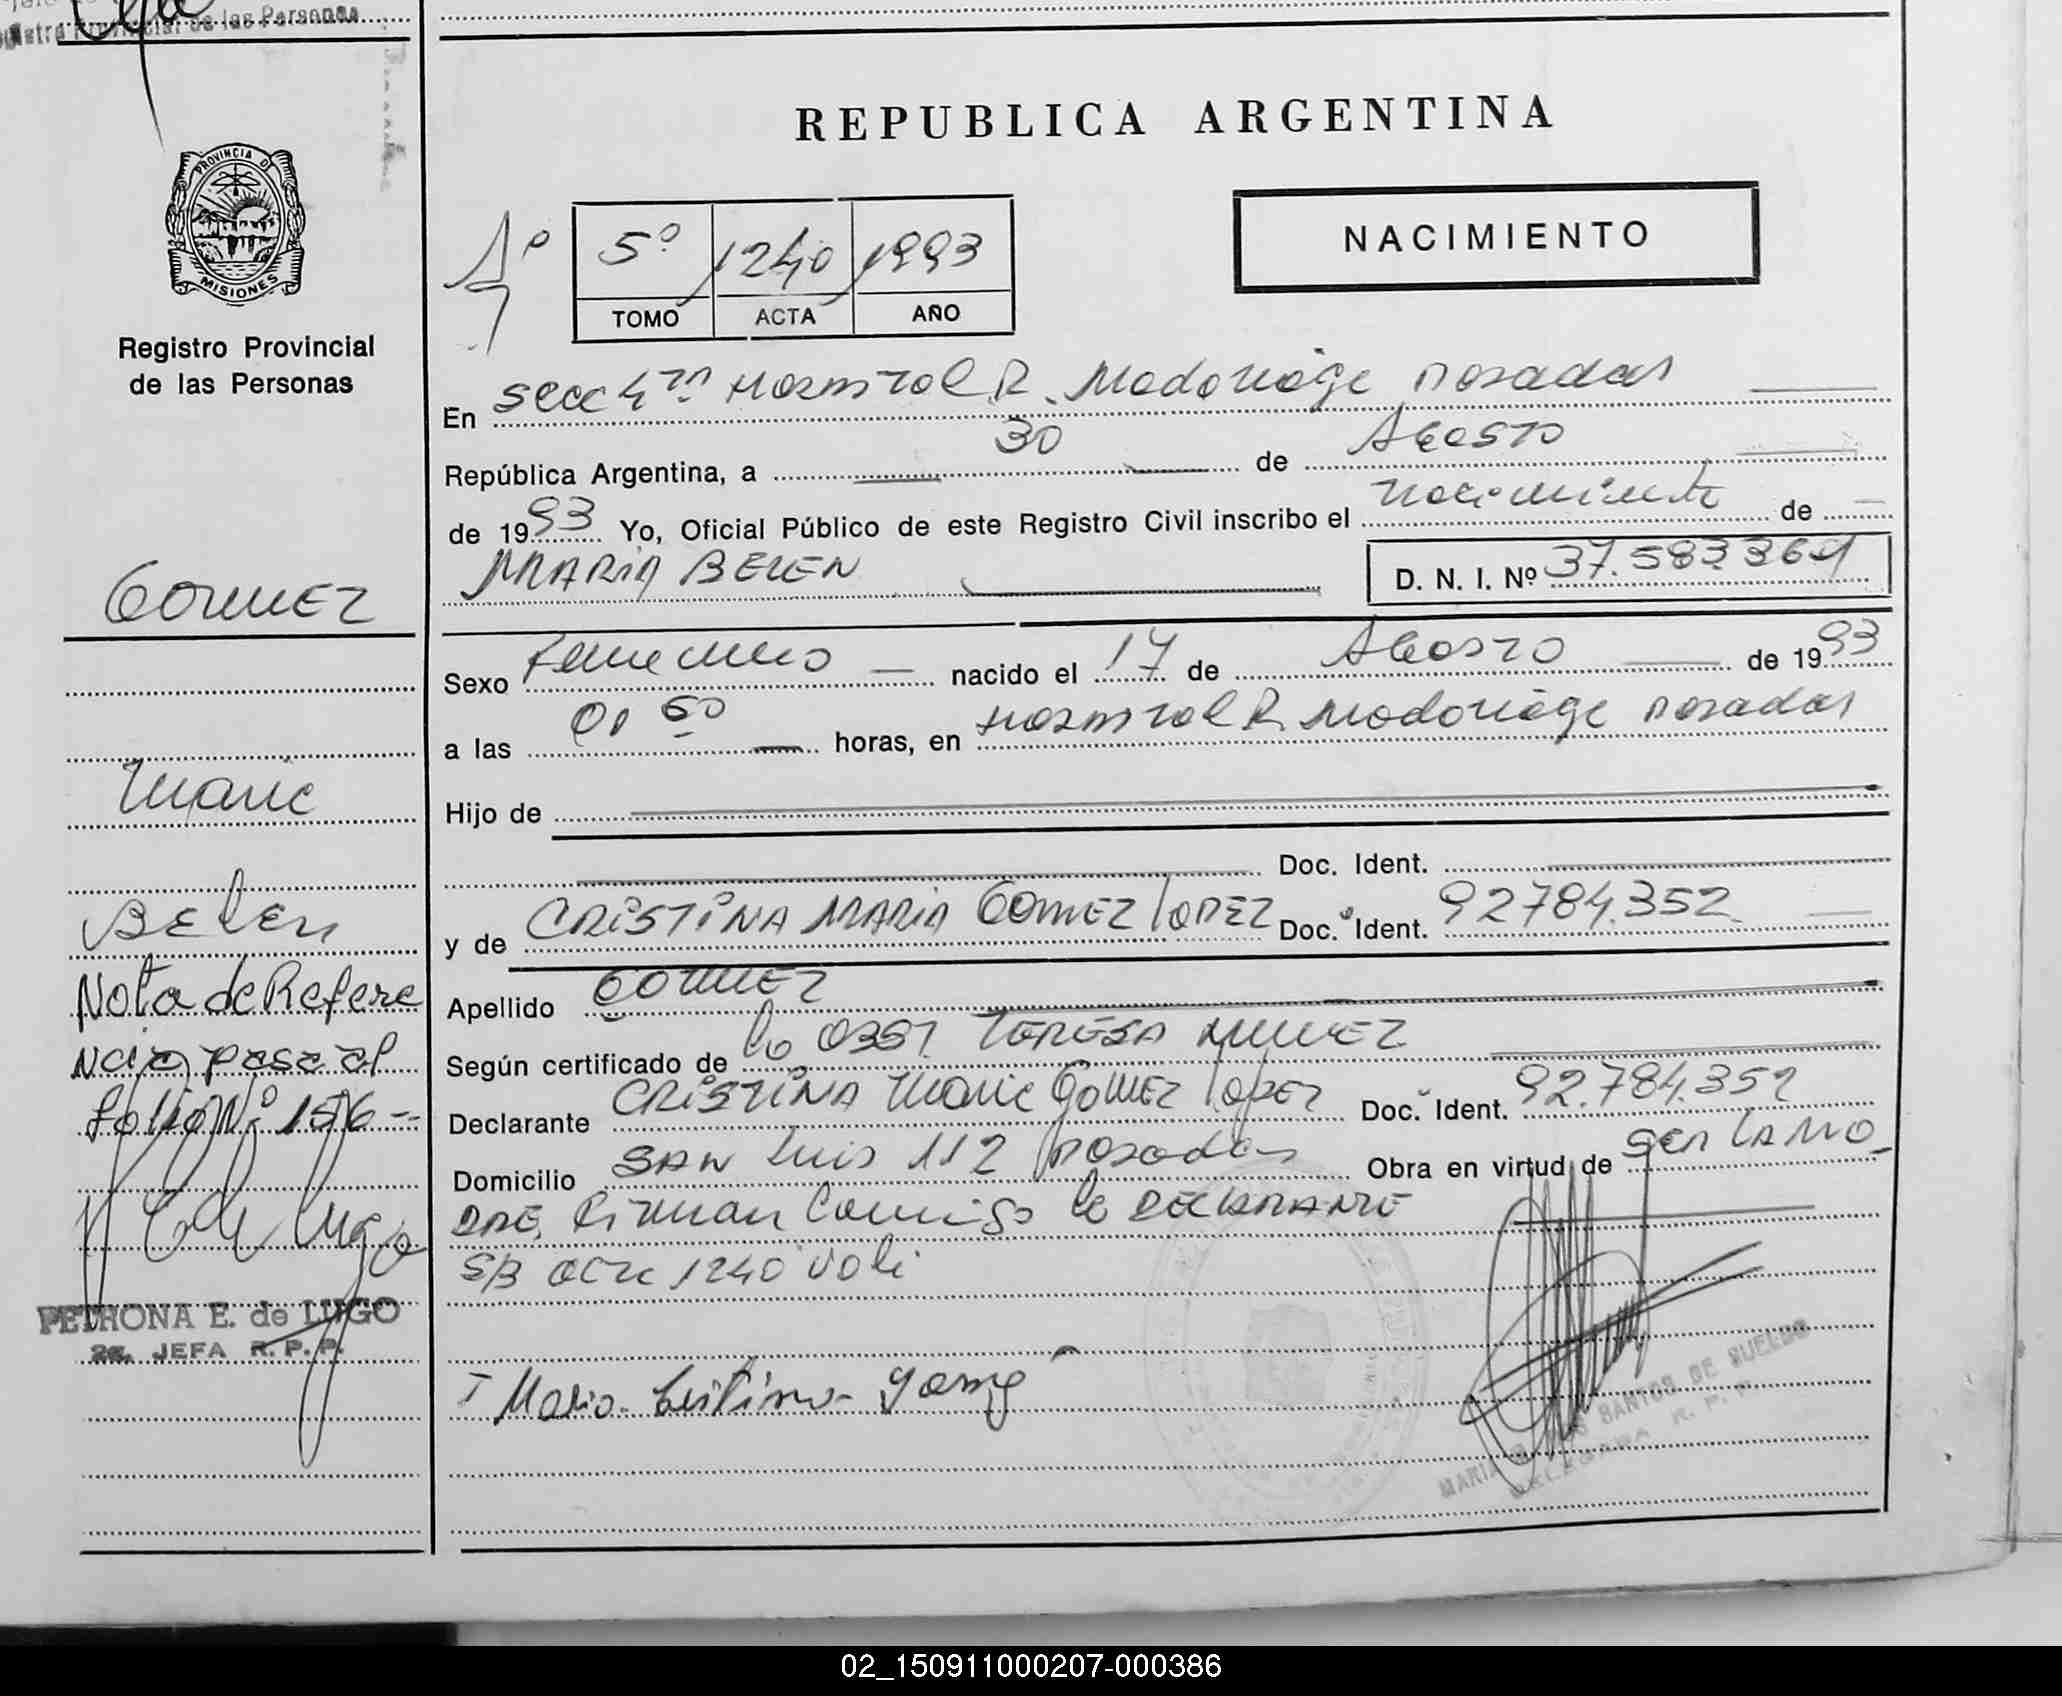 Registro Provincial de las Personas
REPUBLICA ARGENTINA
PROVINCIA DE
MISIONES
Registro Provincial
de las Personas
5º 1240 1993
TOMO ACTA AÑO
NACIMIENTO
En Secc 4ta Hospital R. Madariaga Posadas
República Argentina, a 30 de Agosto
de 1993 Yo, Oficial Público de este Registro Civil inscribo el nacimiento de
MARIA BELEN
D. N. I. Nº 37.583.364
Sexo Femenino nacido el 17 de Agosto de 1993
a las 01 50 horas, en Hospital R Madariaga Posadas
Hijo de
Doc. Ident.
y de CRISTINA MARIA GOMEZ LOPEZ Doc. Ident. 92784.352
Apellido GOMEZ
Según certificado de la OBST. TERESA NUÑEZ
Declarante CRISTINA Maria Gomez Lopez Doc. Ident. 92.784.352
Domicilio SAN Luis 112 Posadas Obra en virtud de ser la MA
DRE, Firman Conmigo la DECLARANTE
S/B acta 1240 Vale
Maria Cristina Gomez
MARIA SANTOS DE SUELDO
DELEGADA R. P. P.
GOMEZ
Maria
Belen
Nota de Refere
ncia pasa al
folio Nº 156 --
P E de Lugo
PETRONA E. de LUGO
2a. JEFA R. P. P.
02_150911000207-000386